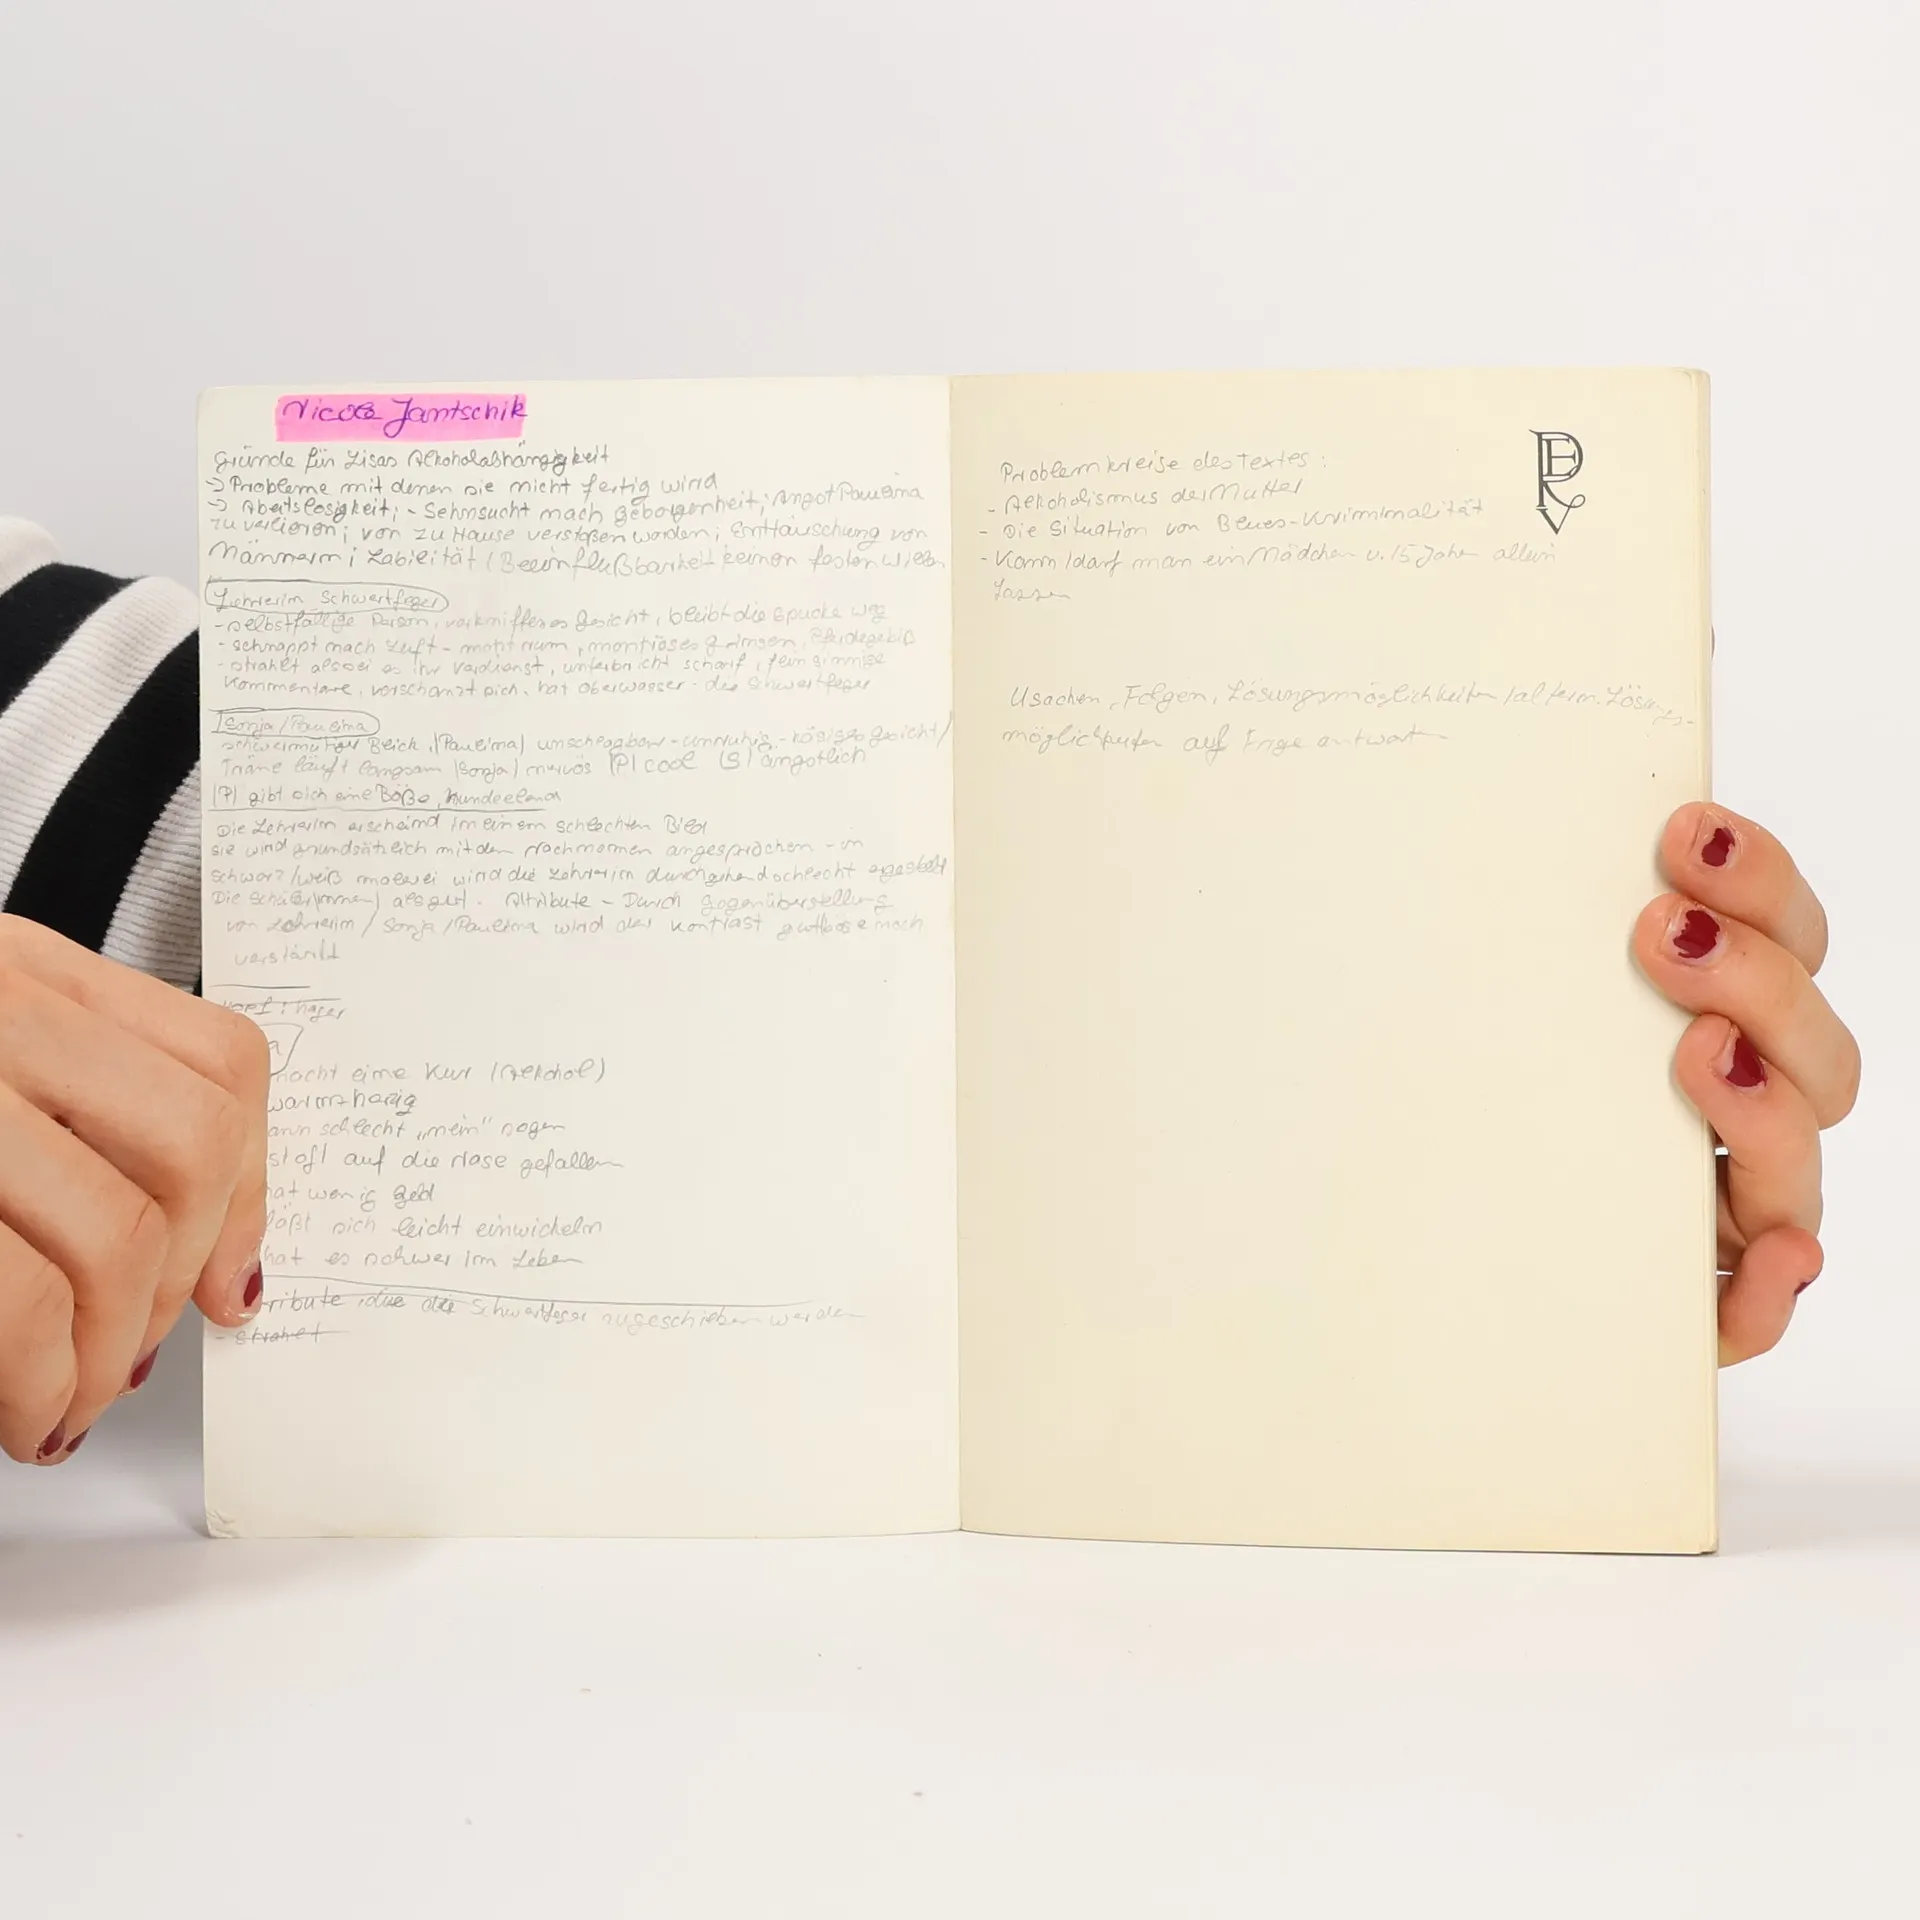 Nicole Jantschik
Gründe für Lisas Alkoholabhängigkeit
→ Probleme mit denen sie nicht fertig wird
→ Abeitslosigkeit; - Sehnsucht nach Geborgenheit; Angst Paulina
zu verlieren; von zu Hause verstoßen worden; Enttäuschung von
Männern; Labilität / Beeinflußbarkeit keinen festen Willen
Lehrerin Schwertfeger
- selbstfällige Person, verkniffenes Gesicht, bleibt die Spucke weg
- schnappt nach Luft - motzt rum, Grinsen, Pferdegebiß
- strahlt als sei es ihr Verdienst, unterbricht scharf, feinsinnige
Kommentare, verschanzt sich, hat Oberwasser - die Schwertfeger
Sonja / Paulina
schwermütiger Blick, |Paulina| unschlagbar - unruhig - käsiges Gesicht /
Träne läuft langsam |Sonja| nervös |P| cool (S) ängstlich
|P| gibt sich eine Böße, hundeelend
Die Lehrerin erscheind in einem schlechten Bild
sie wird grundsätzlich mit dem Nachnamen angesprochen - in
schwarz/weiß malerei wird die Lehrerin durchgehend schlecht
Die Schüler(innen) als gut. Attribute - Durch Gegenüberstellung
von Lehrerin / Sonja / Paulina wird der Kontrast gut/böse noch
verstärkt
: hager
a
macht eine Kur (Alkohol)
warmherzig
kann schlecht „nein" sagen
ist oft auf die Nase gefallen
hat wenig Geld
läßt sich leicht einwickeln
hat es schwer im Leben
tribute, die die Schwertfeger zugeschrieben werden
- strahlt
PERV
Problemkreise des Textes :
- Alkoholismus der Mutter
- Die Situation von Blues-Kriminalität
- Kann / darf man ein Mädchen v. 15 Jahren allein
lassen
Usachen, Folgen, Lösungsmöglichkeiten / altern. Lösungs-
möglichkeiten auf Frage antworten